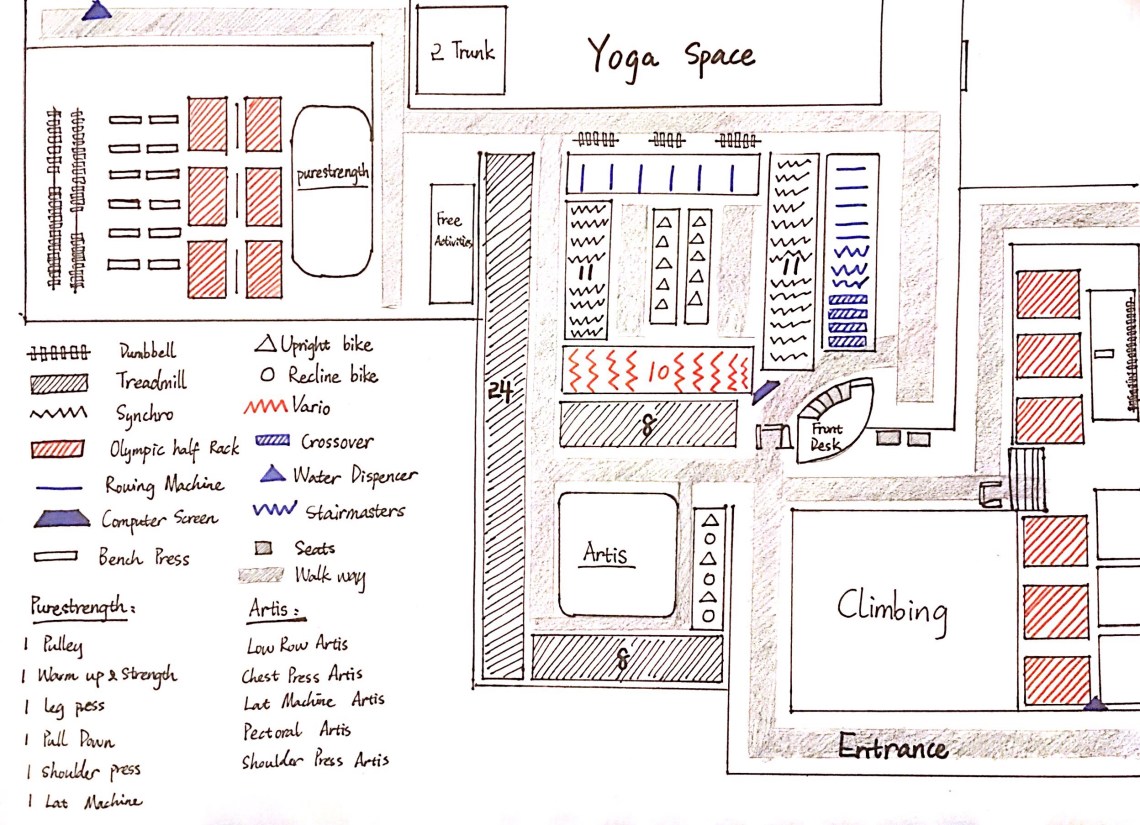 2 Trunk
Yoga Space
purestrength
Free
Activities
11
11
24
10
8
Front
Desk
Artis
8
Climbing
Entrance
Dumbbell
Treadmill
Synchro
Olympic half Rack
Rowing Machine
Computer Screen
Bench Press
Upright bike
Recline bike
Vario
Crossover
Water Dispencer
Stairmasters
Seats
Walk way
Purestrength:
1 Pulley
1 Warm up & Strength
1 leg pess
1 Pull Down
1 shoulder press
1 Lat Machine
Artis:
Low Row Artis
Chest Press Artis
Lat Machine Artis
Pectoral Artis
Shoulder Press Artis